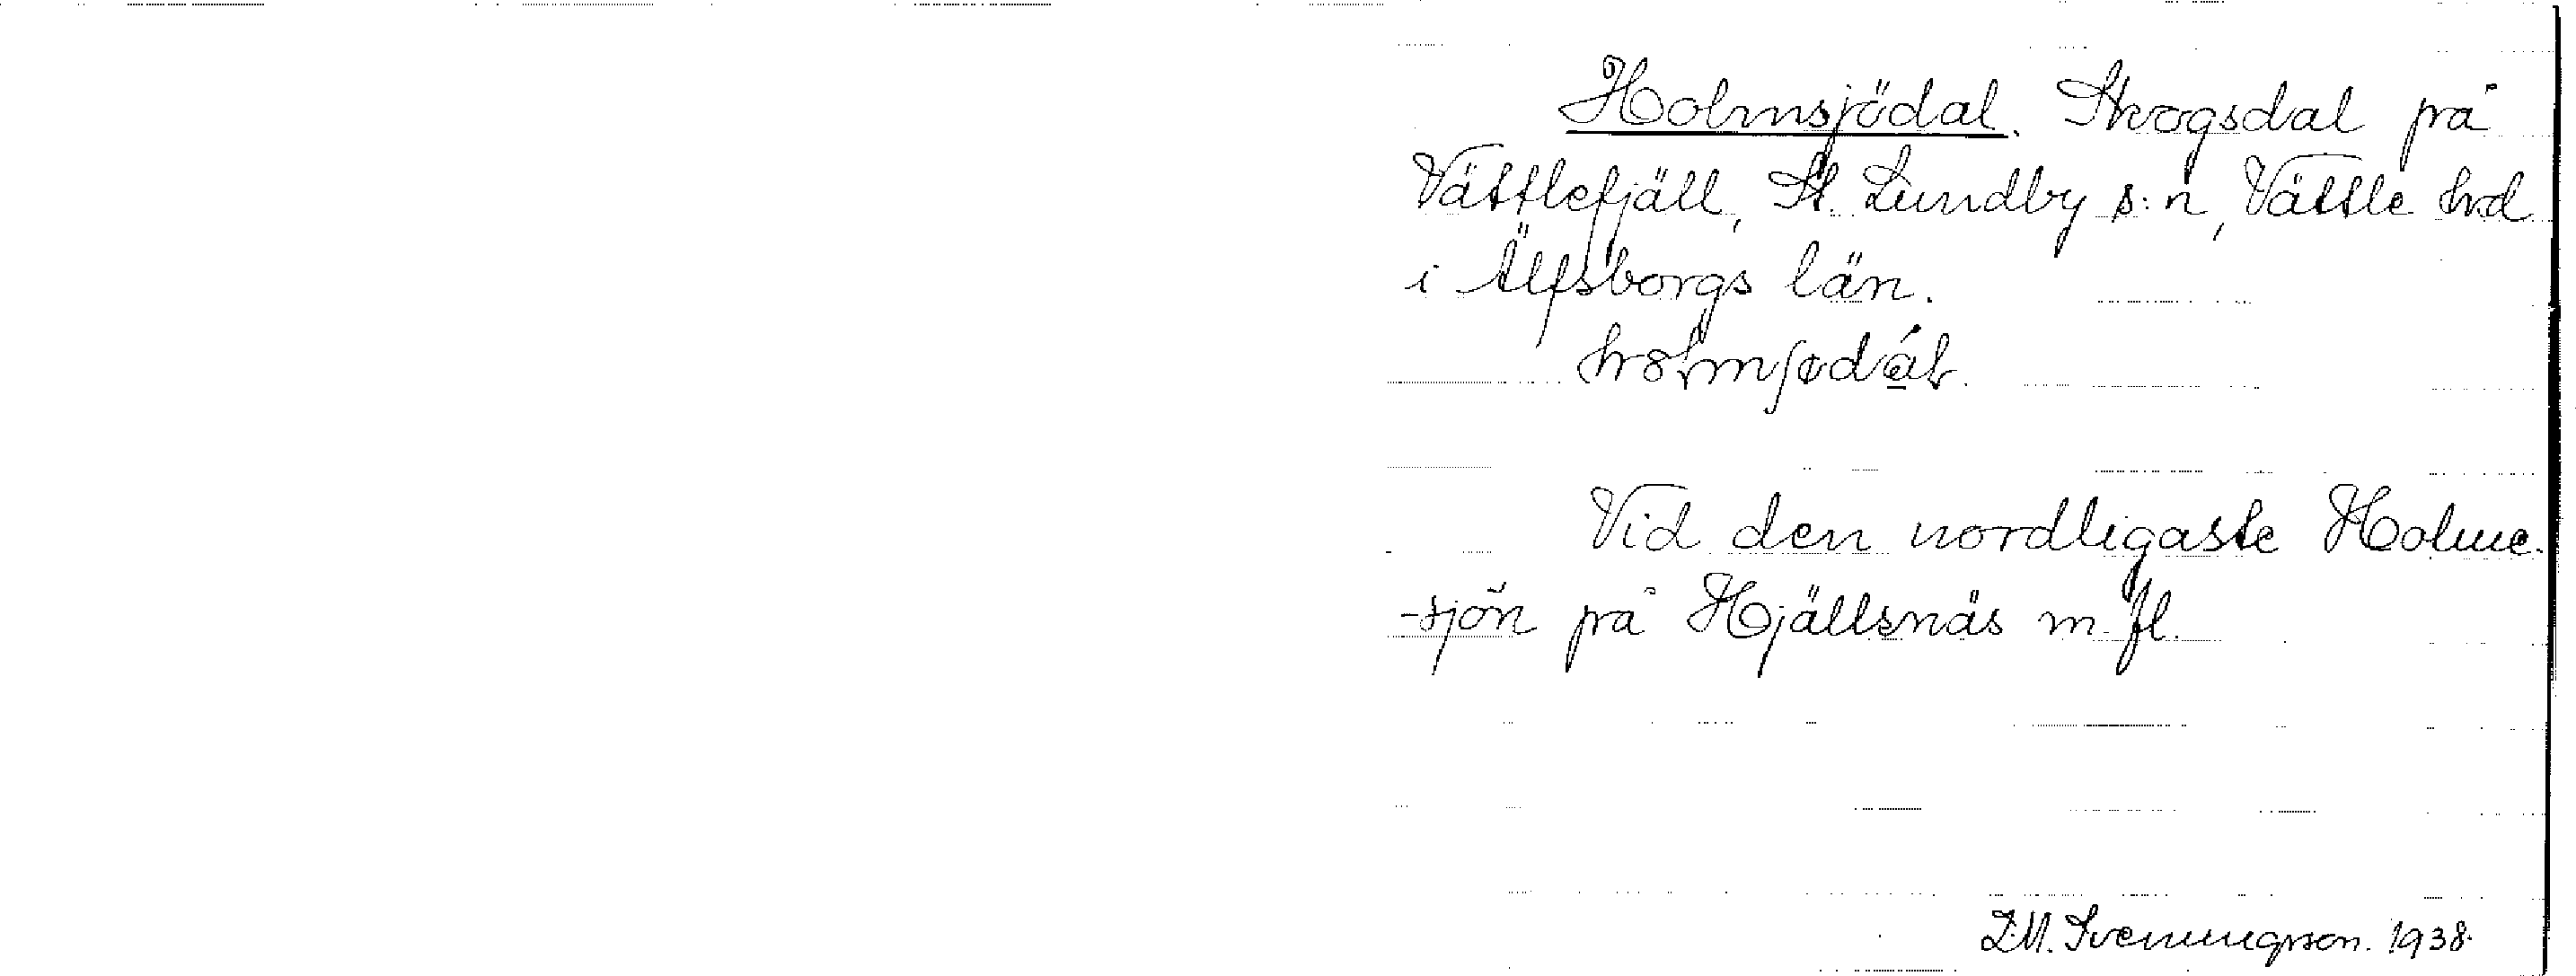 Holmsjödal. Skogsdal på
Vättlefjäll, St. Lundby s:n, Vättle hd
i Älfsborgs län.
Vid den nordligaste Holme-
-sjön på Hjällsnäs m. fl.
1938.